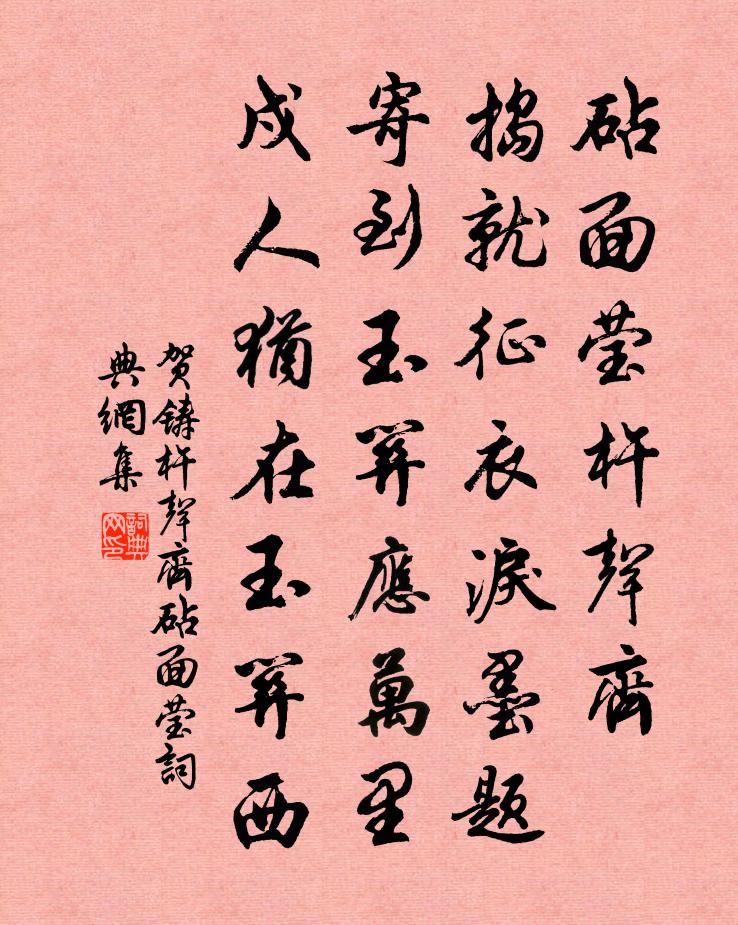 砧面莹杵聲齊
搗就征衣淚墨題
寄到玉關應萬里
戍人猶在玉關西
賀鑄杵聲齊砧面莹詞
典網集
詞典网印